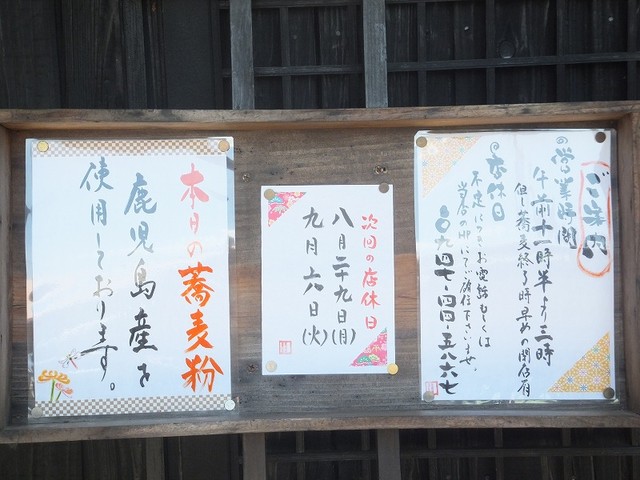 ご案内
の営業時間
午前十一時半より三時
但し蕎麦終了時早めの閉店有
の店休日
不定につき、お電話もしくは
当店のHPにてご確認下さいませ。
〇九四七-四四-五八六七
次回の店休日
八月二十九日(月)
九月六日(火)
本日の蕎麦粉
鹿児島産を
使用しております。